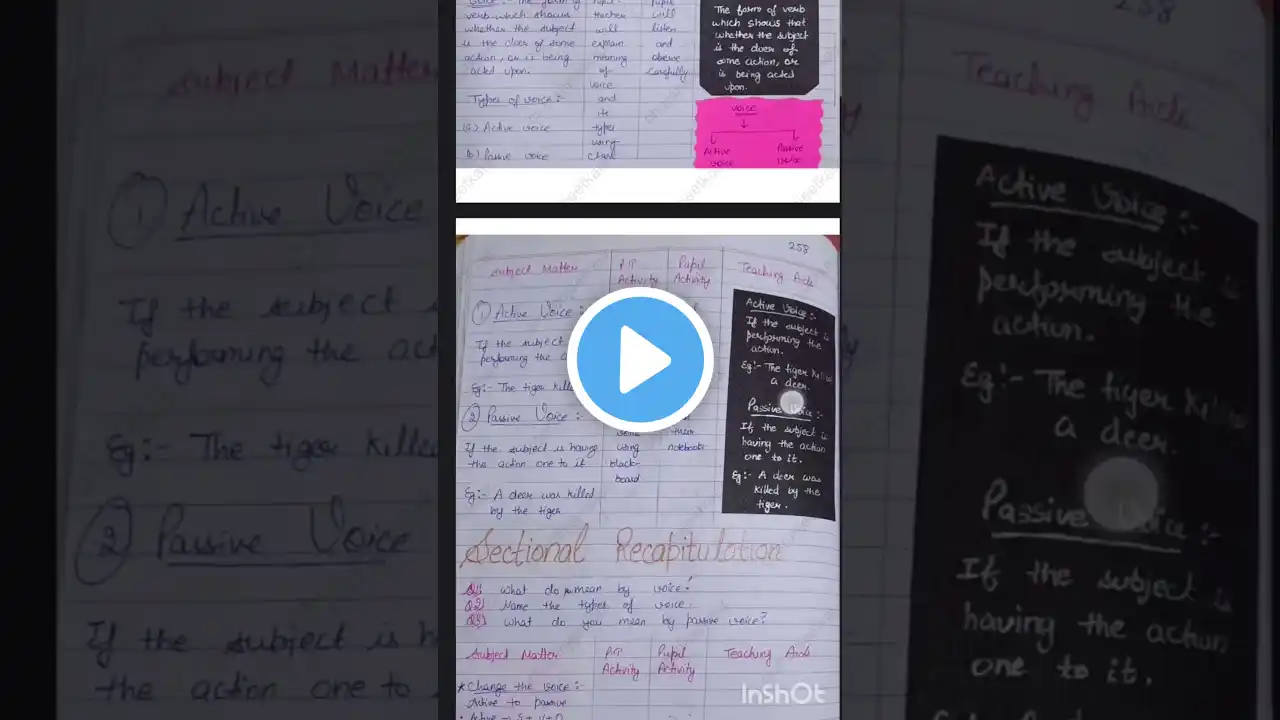 verb which shows teacher will
whether the subject will listen
is the doer of some explain and
action, or is being meaning obeserve
acted upon. of carefully
voice
Types of voice :- and
its
(a) Active voice types
using
(b) Passive voice
The form of verb
which shows that
whether the subject
is the doer of
some action, or
is being acted
upon.
voice
Active Passive
voice voice
258
Subject Matter P.T Activity Pupil Activity Teaching Aids
① Active Voice :-
If the subject
performing the
Eg:- The tiger killed
② Passive Voice :-
If the subject is having using notebooks
the action one to it black-
board
Eg:- A deer was killed
by the tiger
Active Voice :-
If the subject is
performing the
action.
Eg:- The tiger killed
a deer.
Passive Voice :-
If the subject is
having the action
one to it.
Eg:- A deer was
killed by the
tiger.
Sectional Recapitulation
Q1 What do mean by voice?
Q2 Name the types of voice.
Q3 What do you mean by passive voice?
Subject Matter P.T Activity Pupil Activity Teaching Aids
* Change the voice :-
Active to passive
InShOt
Subject Matter
① Active Voice
If the subject
performing the
Eg:- The tiger killed
② Passive Voice
If the subject is
the action one to
258
Teaching Aids
Active Voice :-
If the subject is
performing the
action.
Eg:- The tiger killed
a deer.
Passive Voice :-
If the subject is
having the action
one to it.